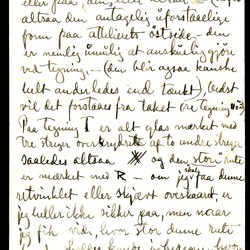 altsaa, den antagelig uforstaaelige
form paa atelierets østside - den
er nemlig umulig at anskueliggjøre
ved tegning - (den blir ogsaa kanske
helt anderledes end tænkt), bedst
vil det forstaaes fra taket (se tegning
Paa Tegning I er alt glas mærket med
tre streger overkrydsete af to andre streger
saaledes altsaa og den store rute
er mærket med R - om jeg skal faa denne
retvinklet eller skjævt overskaaret, er
jeg heller ikke sikker paa, men naar
jeg fik vide, hvor stor denne rute